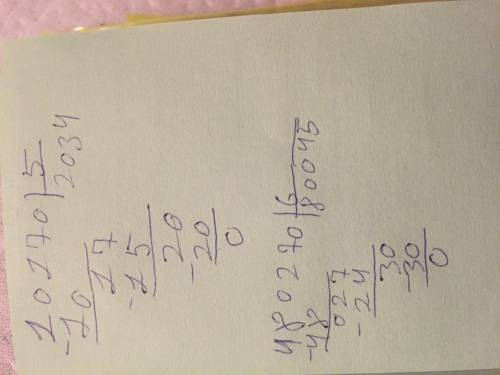 10170|5
-10 2034
17
-15
20
-20
0
480270|6
-48 80045
027
-24
30
-30
0